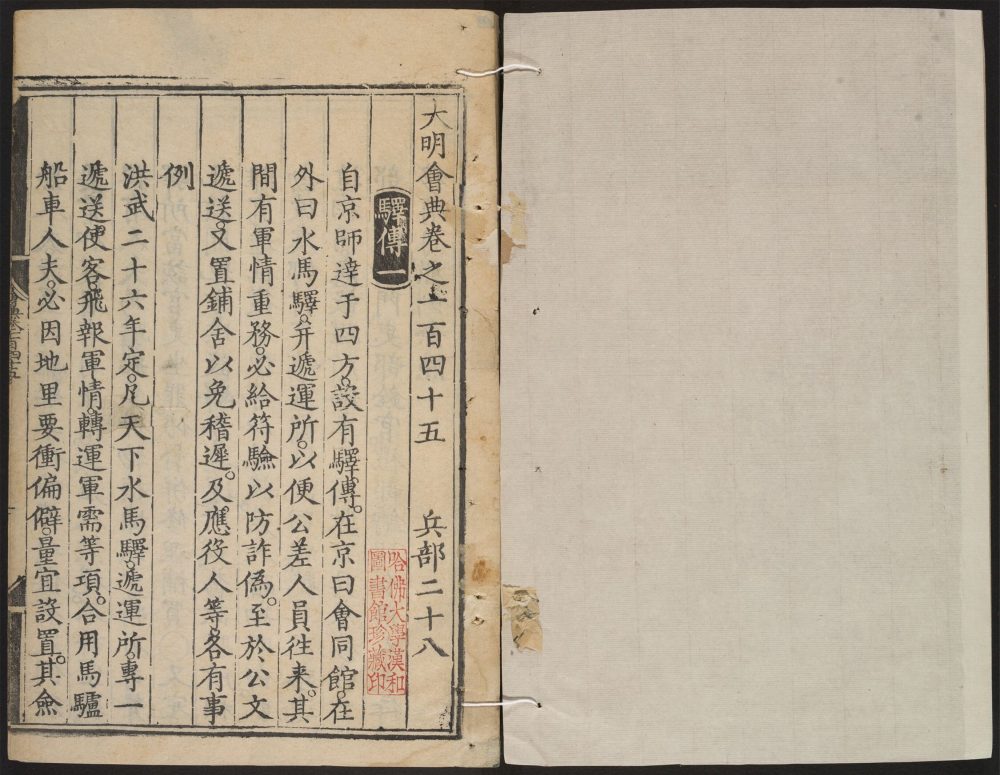 大明會典卷之一百四十五 兵部二十八
驛傳一
自京師達于四方。設有驛傳。在京曰會同館。在
外曰水馬驛。并遞運所。以便公差人員徃來。其
間有軍情重務。必給符驗以防詐僞。至於公文
遞送。又置鋪舍以免稽遲。及應役人等。各有事
例
洪武二十六年定。凡天下水馬驛。遞運所。專一
遞送使客。飛報軍情。轉運軍需等項。合用馬驢
船車人夫。必因地里要衝偏僻。量宜設置。其僉
哈佛大學漢和
圖書館珍藏印